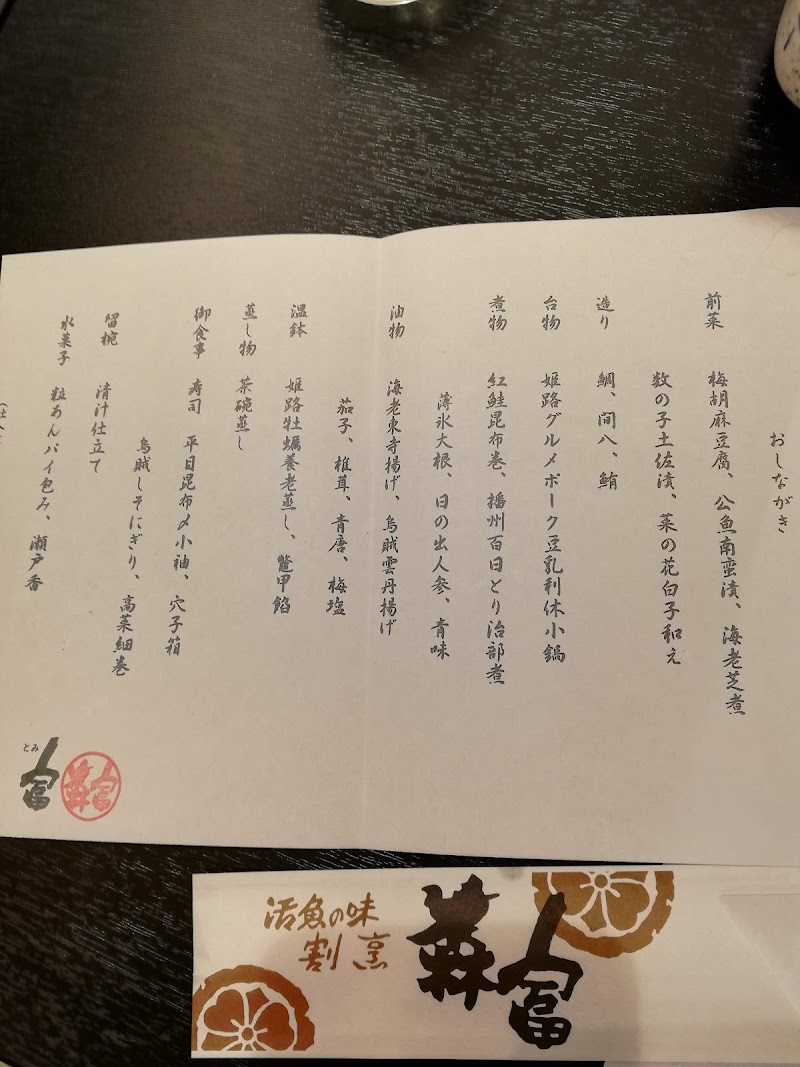 おしながき
前菜 梅胡麻豆腐、公魚南蛮漬、海老芝煮
数の子土佐漬、菜の花白子和え
造り 鯛、間八、鮪
台物 姫路グルメポーク豆乳利休小鍋
煮物 紅鮭昆布巻、播州百日どり治部煮
薄氷大根、日の出人参、青味
油物 海老東寺揚げ、烏賊雲丹揚げ
茄子、椎茸、青唐、梅塩
温鉢 姫路牡蠣養老蒸し、鼈甲餡
蒸し物 茶碗蒸し
御食事 寿司 平目昆布〆小袖、穴子箱
烏賊しそにぎり、高菜細巻
留椀 清汁仕立て
水菓子 粒あんパイ包み、瀬戸香
とみ
富
富
活魚の味
割烹
富